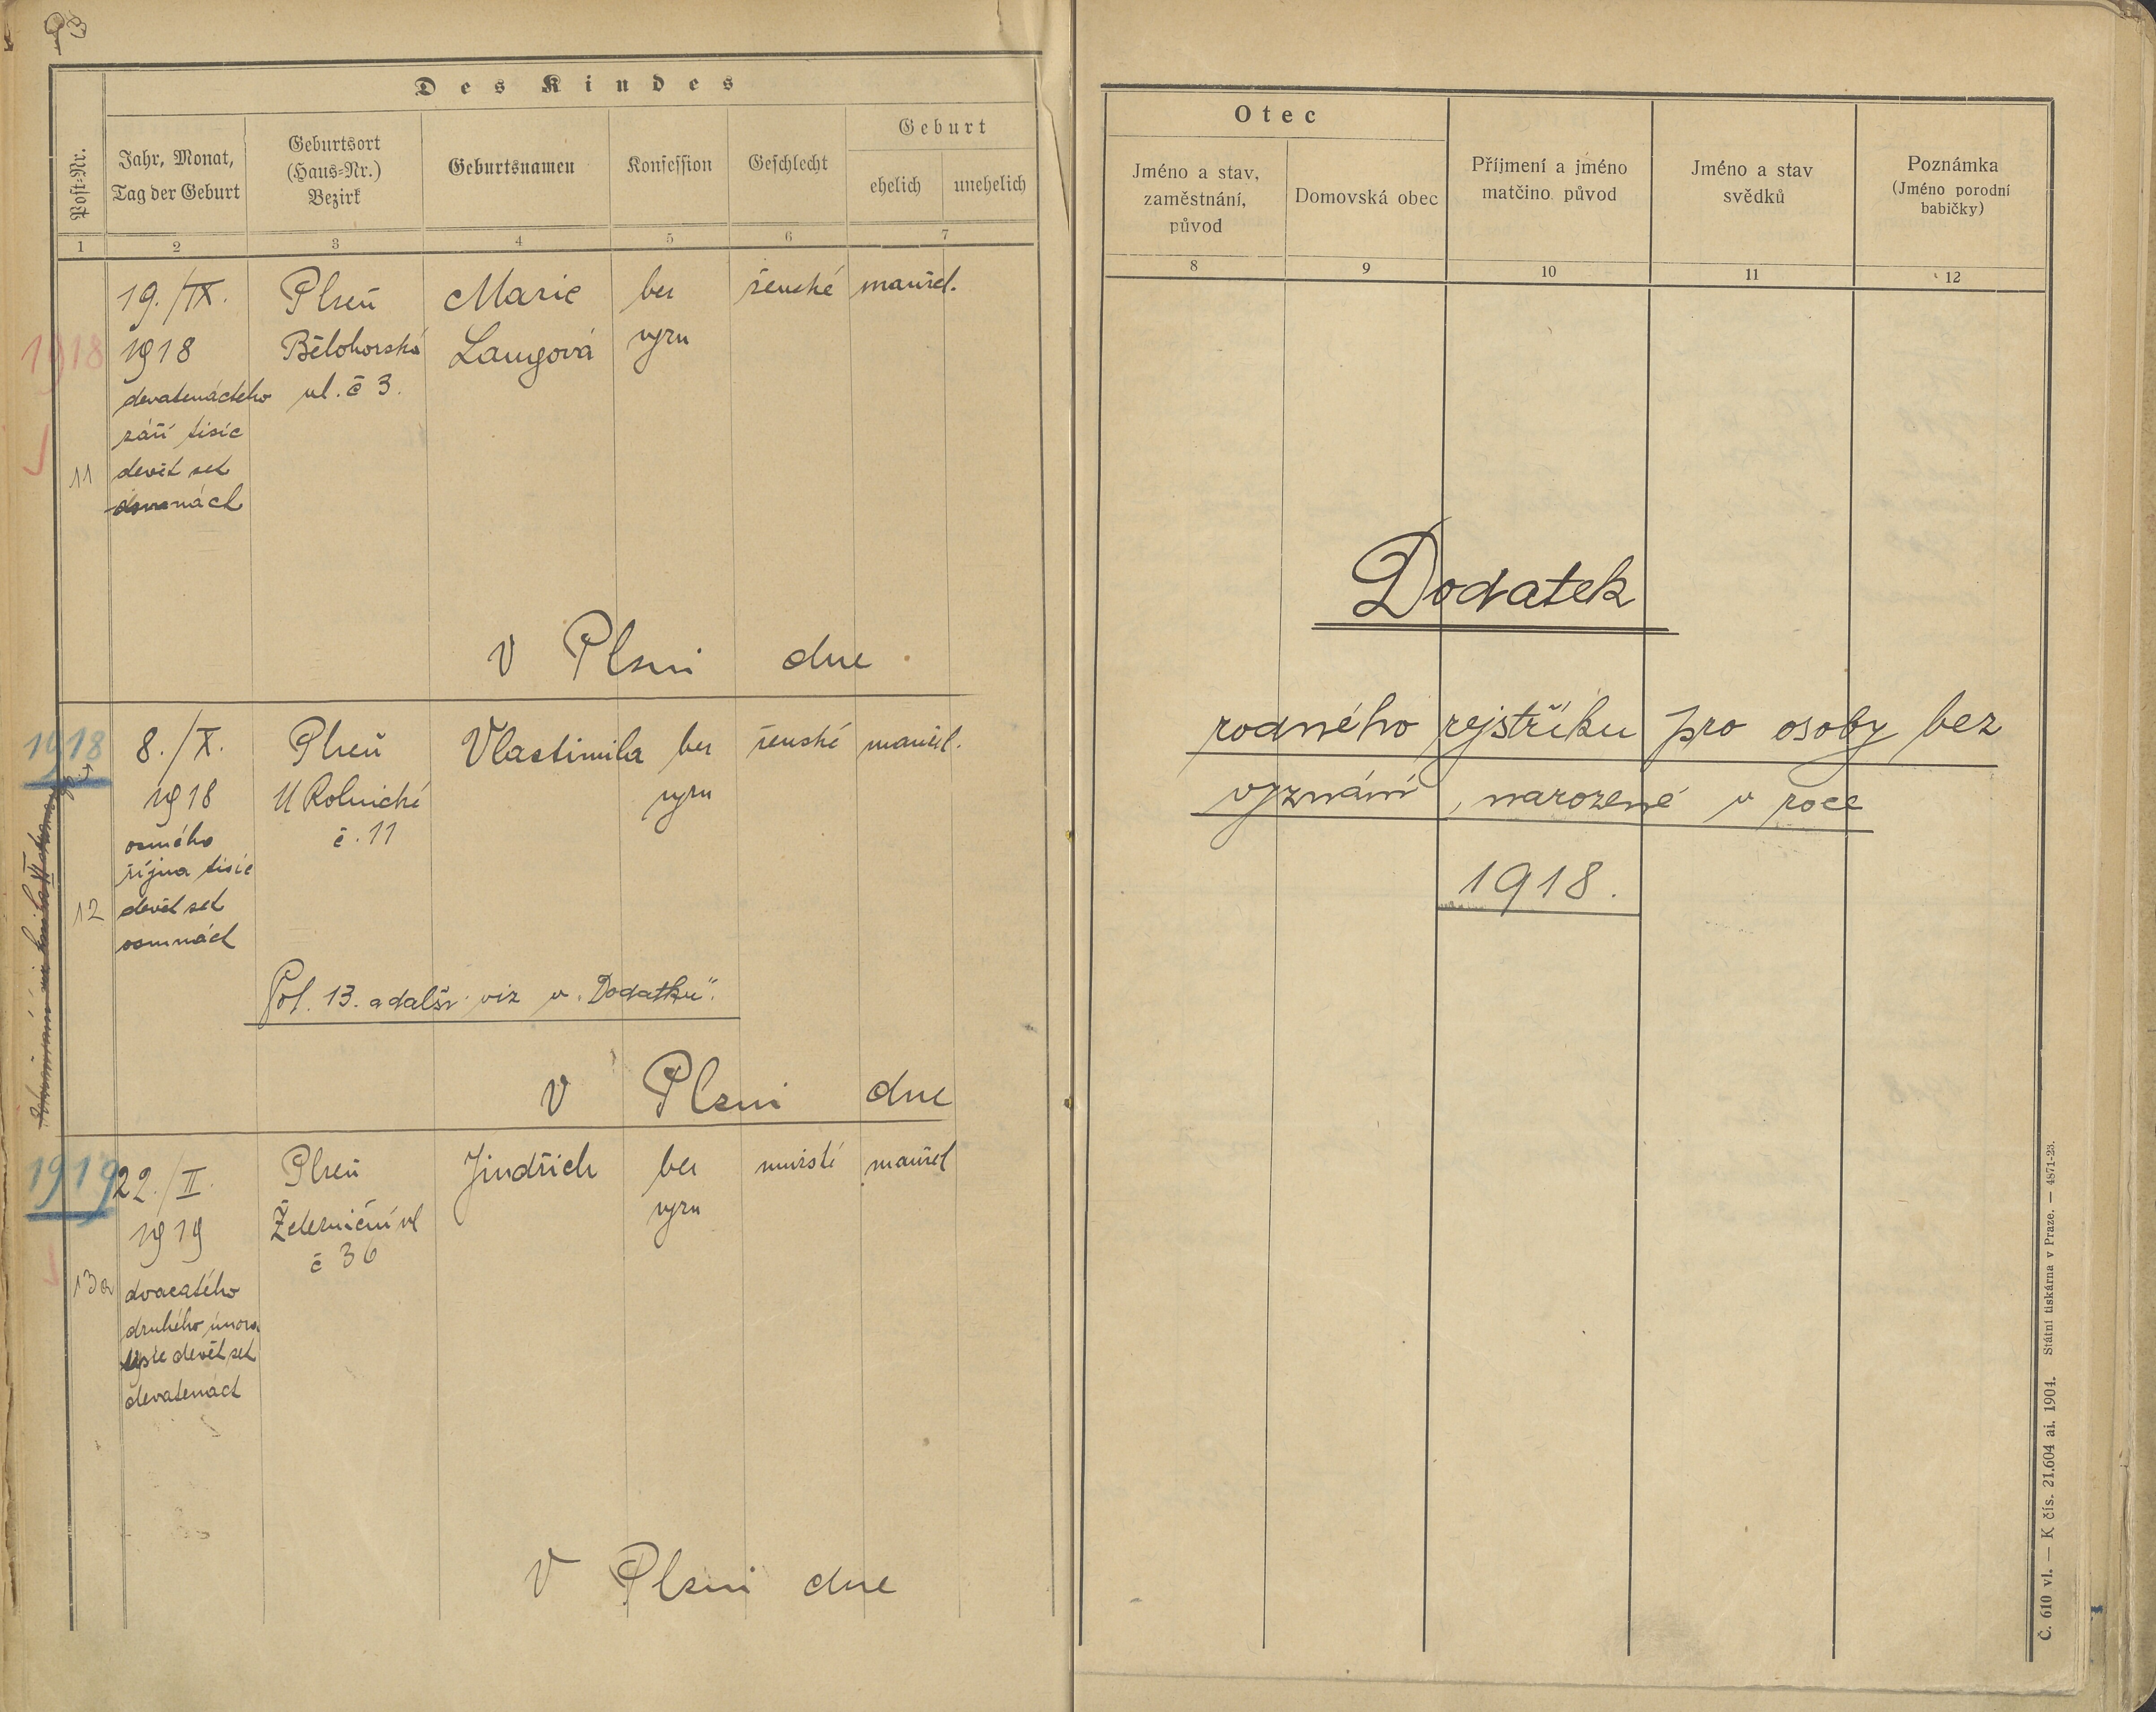 Des Kindes
Post-Nr.
Jahr, Monat,
Tag der Geburt
Geburtsort
(Haus-Nr.)
Bezirk
Geburtsnamen
Konfession
Geschlecht
Geburt
ehelich
unehelich
1 2 3 4 5 6 7
1918
11
19./IX.
1918
devatenáctého
září tisíc
devět set
Plzeň
Bělohorská
ul. č 3.
Marie
Langová
bez
vyzn
ženské
manžel.
V Plzni dne
1918
12
8./X.
1918
osmého
října tisíc
devět set
osmnáct
Plzeň
U Rolnické
č. 11
Vlastimila
bez
vyzn
ženské
manžel.
Pol. 13. a další viz v „Dodatku".
V Plzni dne
1919
13a
22./II.
1919
dvacatého
druhého února
devět set
devatenáct
Plzeň
Železniční ul
č 36
Jindřich
bez
vyzn
mužské
manžel
V Plzni dne
Otec
Jméno a stav,
zaměstnání,
původ
Domovská obec
Příjmení a jméno
matčino, původ
Jméno a stav
svědků
Poznámka
(Jméno porodní
babičky)
8 9 10 11 12
Dodatek
rodného rejstříku pro osoby bez
vyznání, narozené v roce
1918.
Č. 610 vl. — K čís. 21.604 ai. 1904. Státní tiskárna v Praze. — 4871-23.